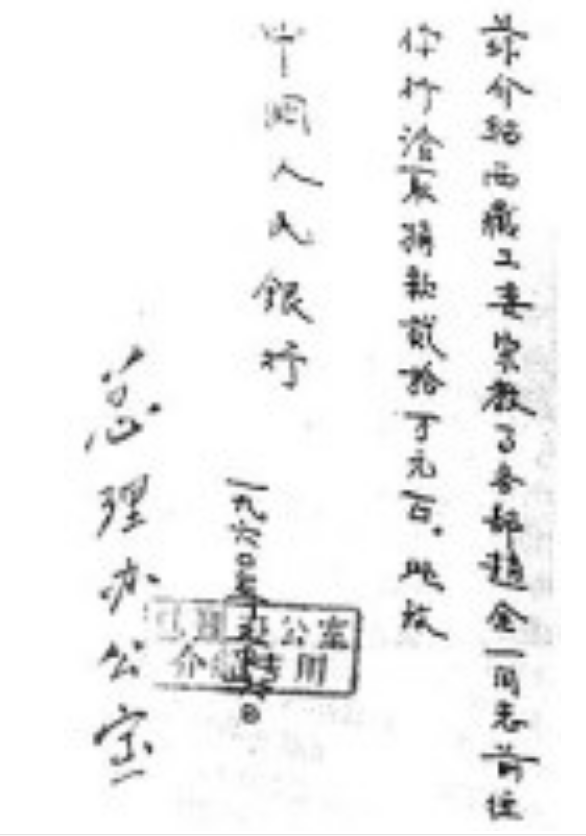 兹介绍西藏工委宗教事务部赵全一同志前往
你行洽取捐款贰拾万元正。此致
中国人民银行
一九六〇年
总理办公室
公室
介 专用